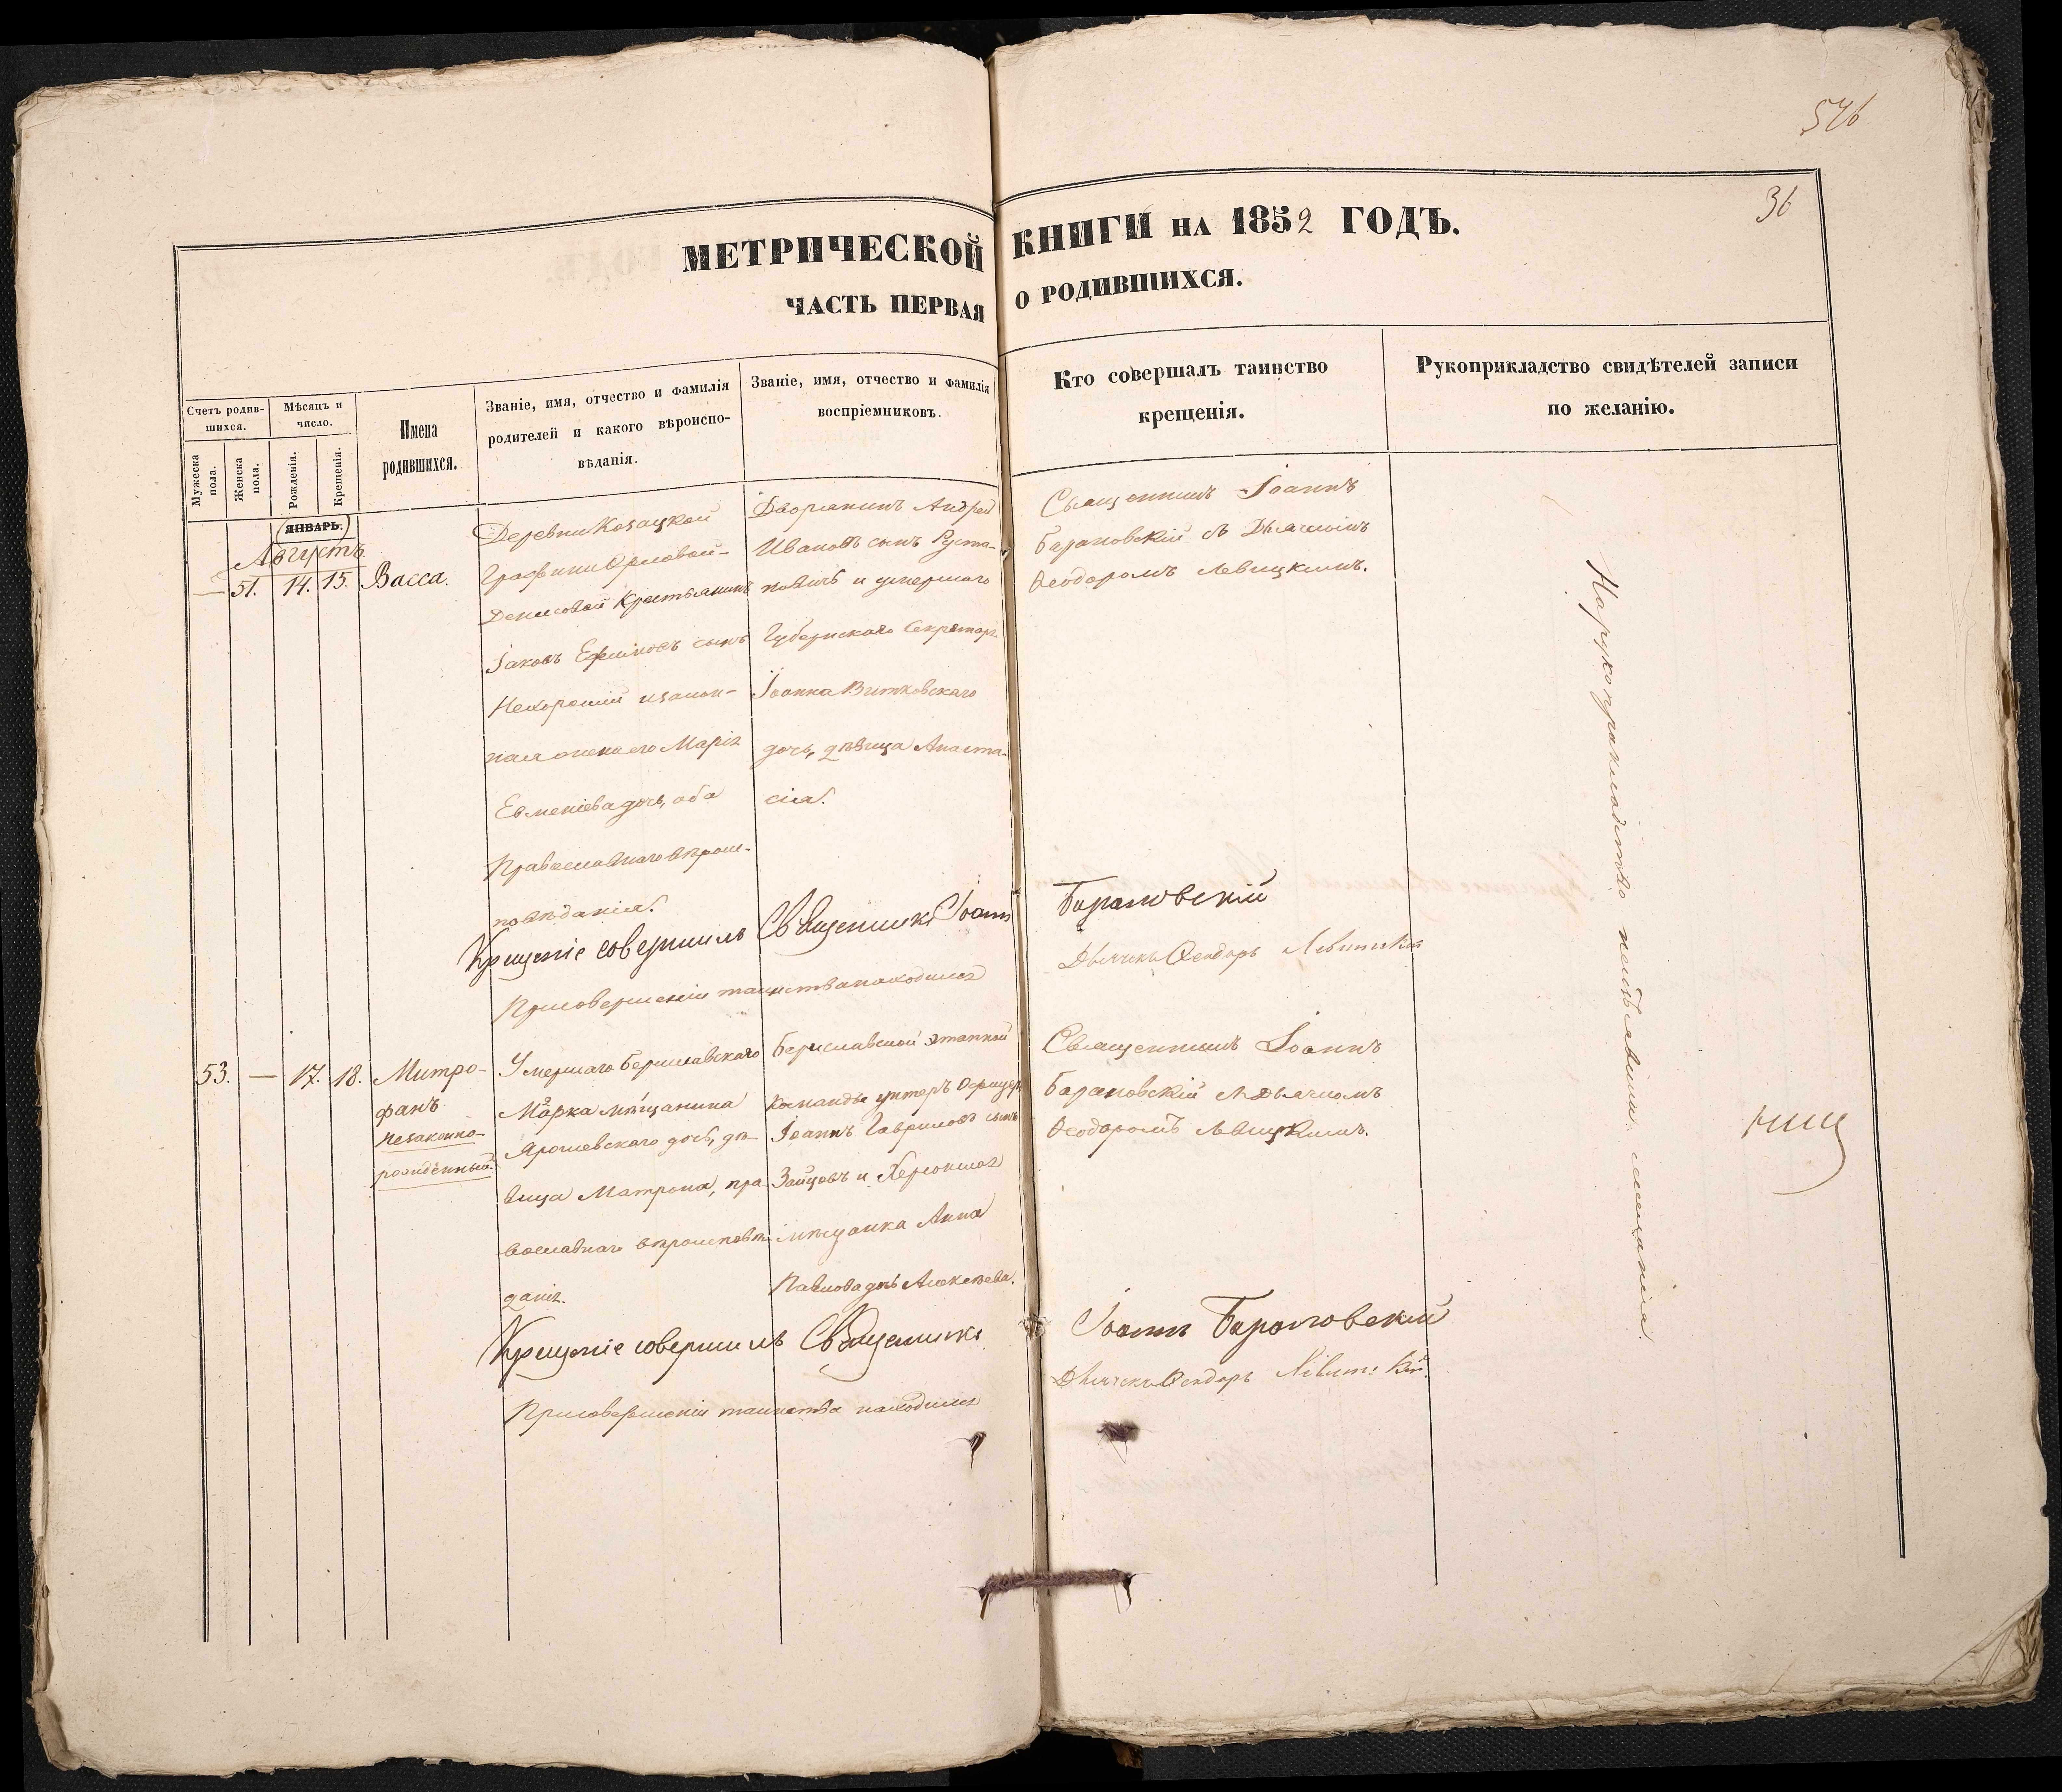 546
36
МЕТРИЧЕСКОЙ КНИГИ НА 1852 ГОДЪ.
ЧАСТЬ ПЕРВАЯ О РОДИВШИХСЯ.
Счетъ родив-
шихся.
Мужеска пола.
Женска пола.
Мѣсяцъ и
число.
Рожденія.
Крещенія.
Имена
родившихся.
Званіе, имя, отчество и фамилія
родителей и какого вѣроиспо-
вѣданія.
Званіе, имя, отчество и фамилія
воспріемниковъ.
Кто совершалъ таинство
крещенія.
Рукоприкладство свидѣтелей записи
по желанію.
ЯНВАРЬ.
Августъ
— 51. 14. 15. Васса.
Деревни Козацкой
Графини Орловой-
Денисовой Крестьянинъ
Іаковъ Ефимовъ сынъ
Нехорошій и закон-
ная жена его Марія
Евменіева дочь, оба
Православнаго вѣроис-
повѣданія.
Дворянинъ Андрей
Ивановъ сынъ
и умершаго
Губернскаго Секретаря
Іоанна Витковскаго
дочь, дѣвица Анаста-
сія.
Священникъ Іоаннъ
Барановскій съ Дьячкомъ
Ѳеодоромъ Левицкимъ.
Крещеніе совершилъ Священникъ Іоаннъ Барановскій
При совершеніи таинства находился Дьячекъ Ѳеодоръ Левитскій
53. — 17. 18. Митро-
фанъ
незаконно-
рожденный.
Умершаго Бериславскаго
Марка мѣщанина
Ярошевскаго дочь, дѣ-
вица Матрона, пра-
вославнаго вѣроисповѣ-
данія.
Бериславской этапной
Команды унтеръ Офицеръ
Іоаннъ Гавриловъ сынъ
Зайцовъ и Херсонская
мѣщанка Анна
Павлова дочь Алексѣева.
Священникъ Іоаннъ
Барановскій съ Дьячкомъ
Ѳеодоромъ Левицкимъ.
Крещеніе совершилъ Священникъ Іоаннъ Барановскій
При совершеніи таинства находился Дьячекъ Ѳеодоръ Левитскій.
На рукоприкладство неизъявили желанія.